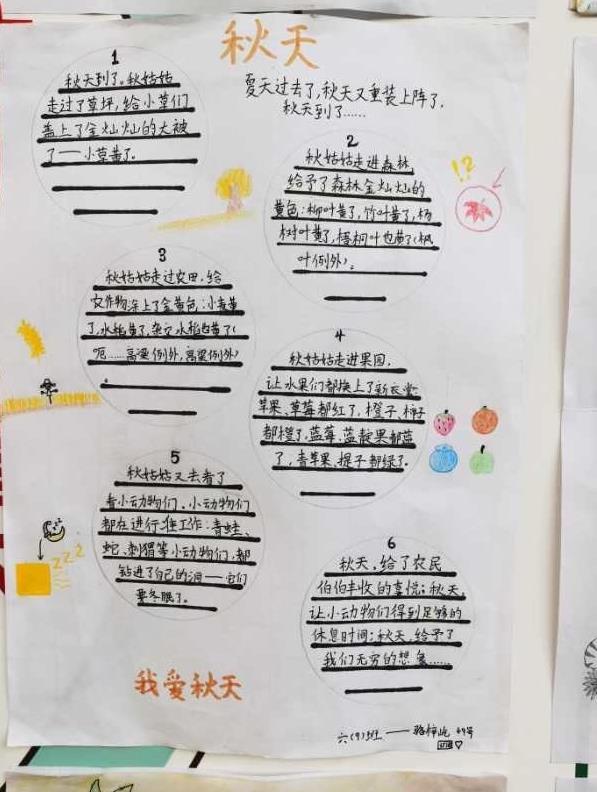 秋天
夏天过去了,秋天又重装上阵了,
秋天到了……
1
秋天到了。秋姑姑
走过了草坪,给小草们
盖上了金灿灿的大被
了——小草黄了。
2
秋姑姑走进森林
给予了森林金灿灿的
黄色:柳叶黄了,竹叶黄了,杨
树叶黄了,梧桐叶也黄了(枫
叶例外)。
!?
3
秋姑姑走过农田,给
农作物涂上了金黄色:小麦黄
了,水稻黄了,杂交水稻也黄了(
呃……高粱例外,高粱例外)
4
秋姑姑走进果园,
让水果们都换上了新衣裳:
苹果、草莓都红了,橙子、柿子
都橙了,蓝莓、蓝靛果都蓝
了,青苹果、提子都绿了。
5
秋姑姑又去看了
看小动物们,小动物们
都在进行工作:青蛙、
蛇、刺猬等小动物们,都
钻进了自己的洞——它们
要冬眠了。
zzz
6
秋天,给了农民
伯伯丰收的喜悦;秋天,
让小动物们得到足够的
休息时间;秋天,给予了
我们无穷的想象……
我爱秋天
六(9)班——骆梓屹 49号